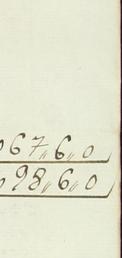 067〃6〃0
98〃6〃0